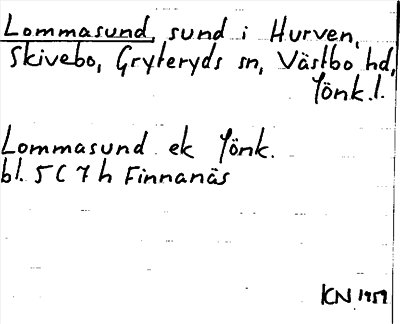 Lommasund, sund i Hurven,
Skivebo, Gryteryds sn, Västbo hd,
Jönk.l.
Lommasund ek Jönk.
bl. 5 C 7 h Finnanäs
KN 1959